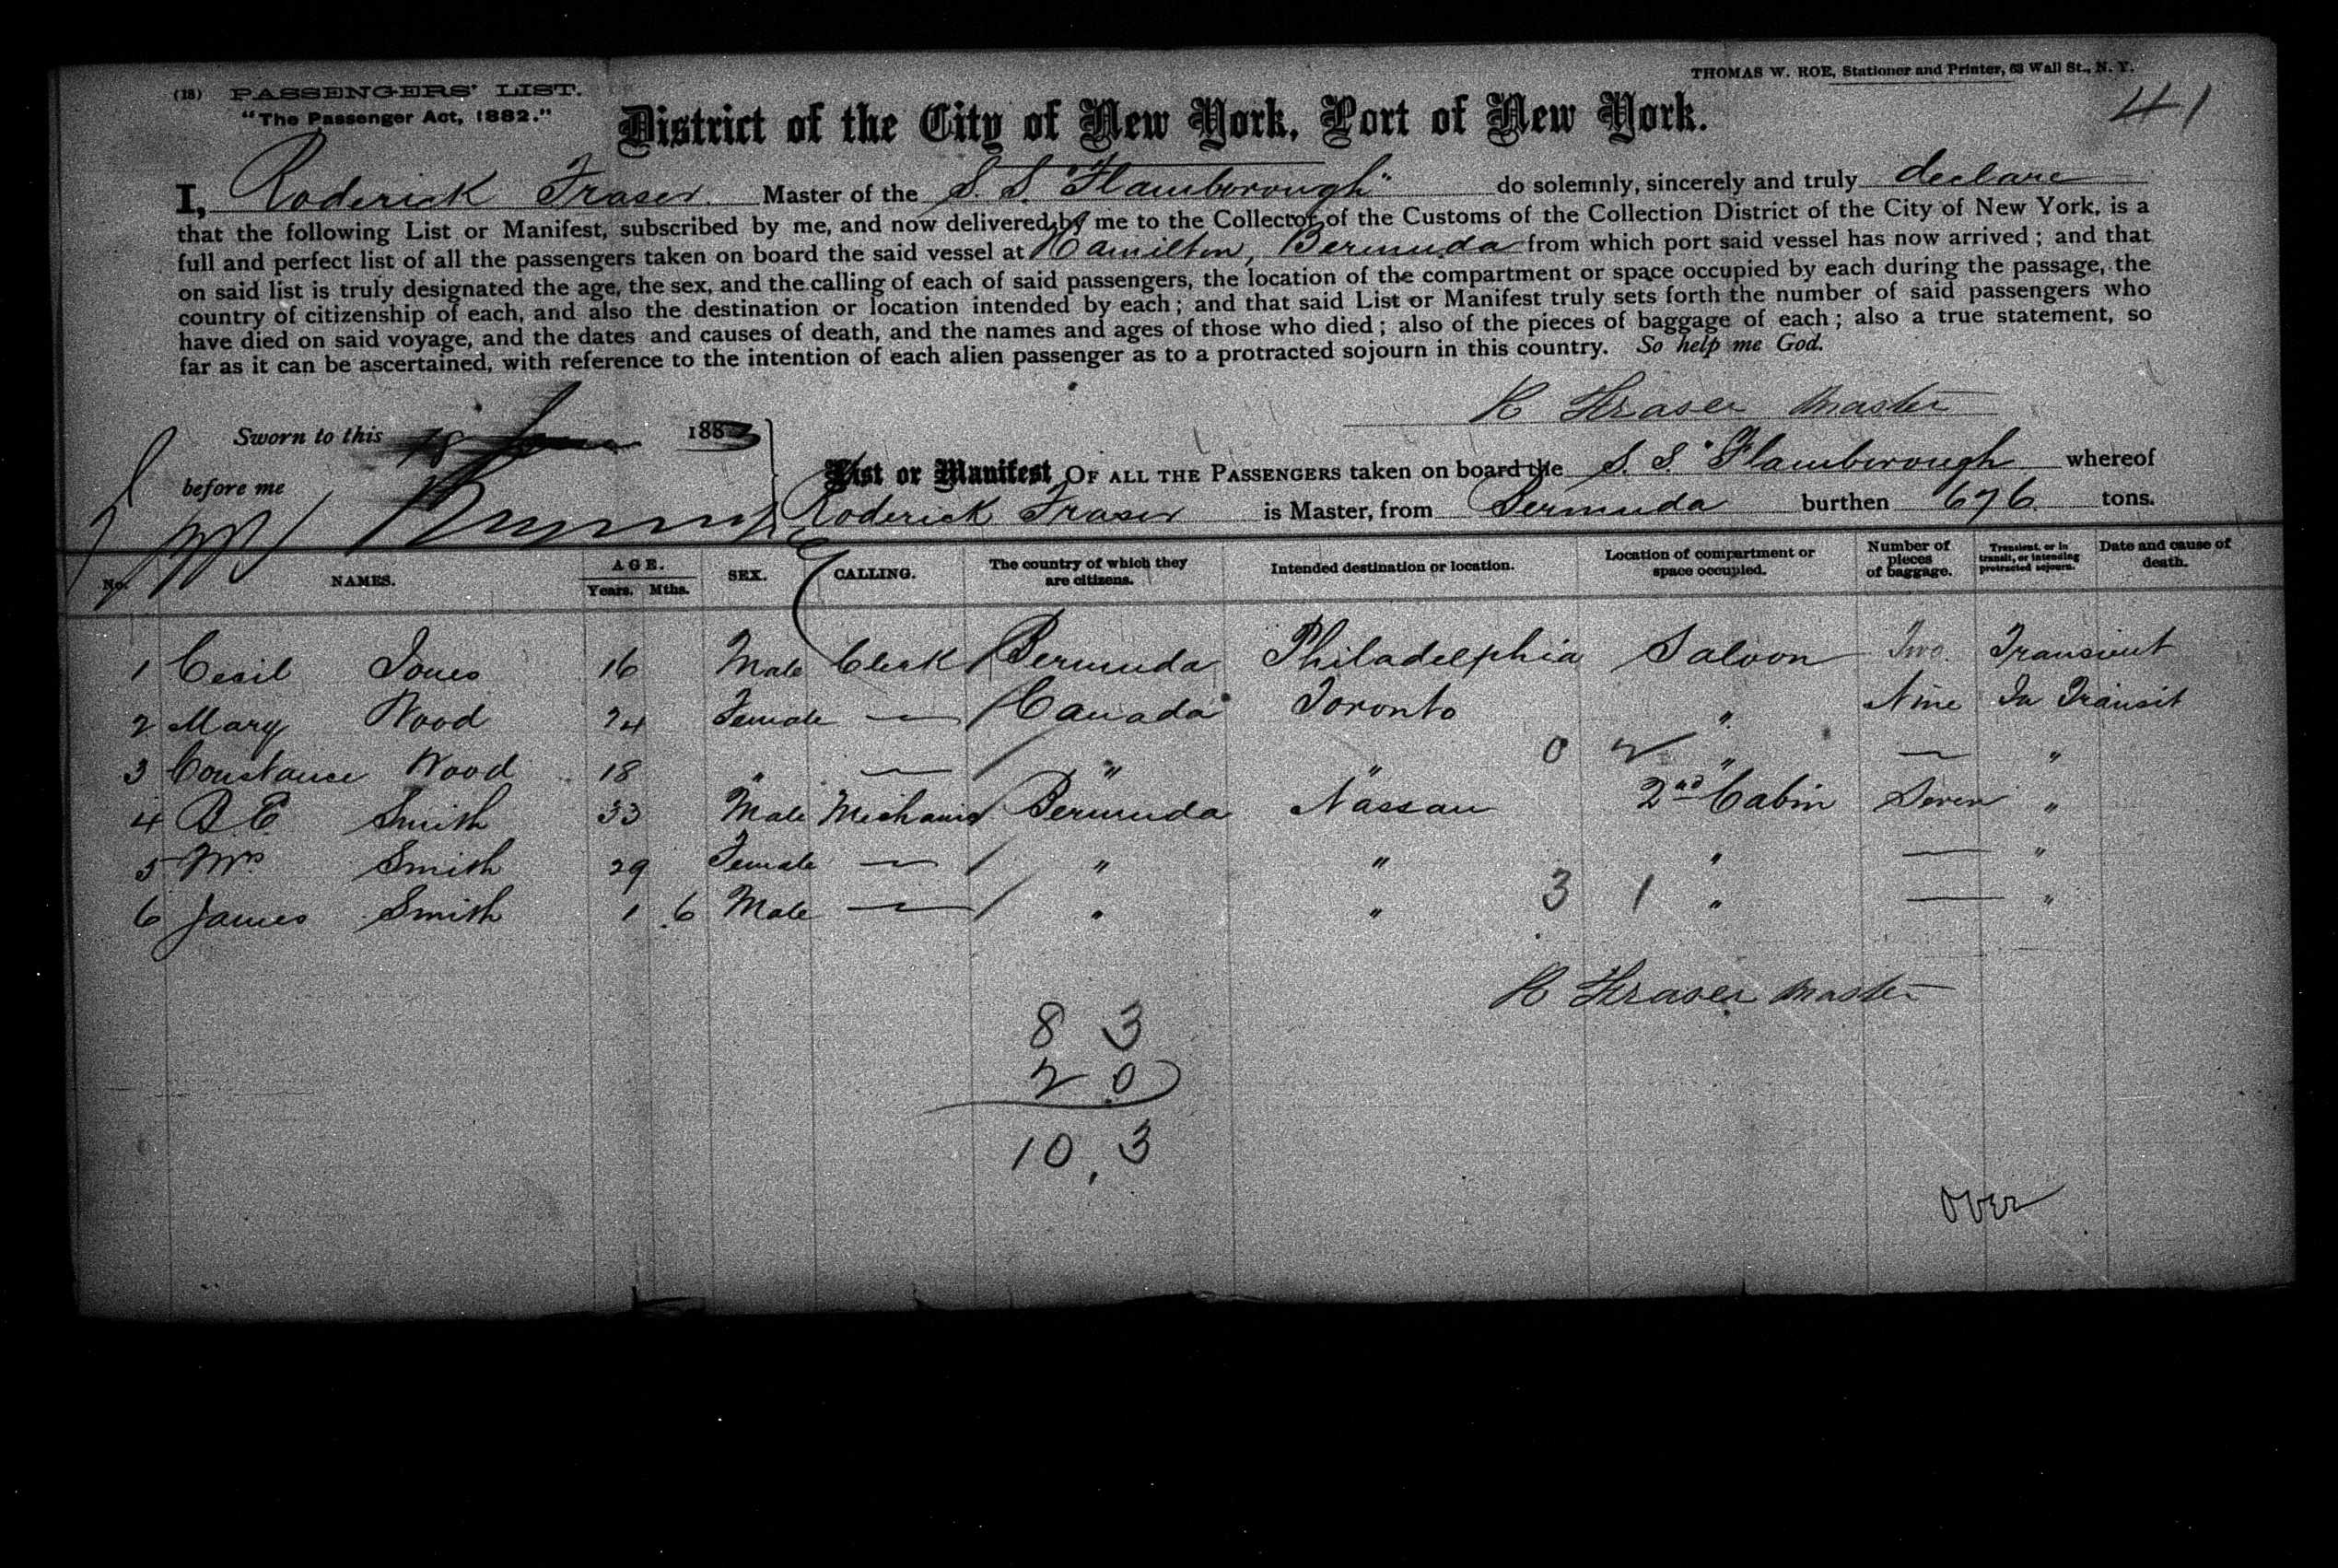 (18) PASSENGERS' LIST.
"The Passenger Act, 1882."
THOMAS W. ROE, Stationer and Printer, 63 Wall St., N. Y.
41
District of the City of New York, Port of New York.
I, Roderick Fraser Master of the S. S. "Flamborough" do solemnly, sincerely and truly declare
that the following List or Manifest, subscribed by me, and now delivered by me to the Collector of the Customs of the Collection District of the City of New York, is a
full and perfect list of all the passengers taken on board the said vessel at Hamilton, Bermuda from which port said vessel has now arrived; and that
on said list is truly designated the age, the sex, and the calling of each of said passengers, the location of the compartment or space occupied by each during the passage, the
country of citizenship of each, and also the destination or location intended by each; and that said List or Manifest truly sets forth the number of said passengers who
have died on said voyage, and the dates and causes of death, and the names and ages of those who died; also of the pieces of baggage of each; also a true statement, so
far as it can be ascertained, with reference to the intention of each alien passenger as to a protracted sojourn in this country. So help me God.
R Fraser Master
Sworn to this 18 1883
before me
List or Manifest OF ALL THE PASSENGERS taken on board the S. S. "Flamborough whereof
Roderick Fraser is Master, from Bermuda burthen 676 tons.
No. NAMES. AGE. Years. Mths. SEX. CALLING. The country of which they are citizens. Intended destination or location. Location of compartment or space occupied. Number of pieces of baggage. Transient, or in transit, or intending protracted sojourn. Date and cause of death.
1 Cecil Jones 16 Male Clerk Bermuda Philadelphia Saloon Two Transient
2 Mary Wood 24 Female — Canada Toronto " Nine In Transit
3 Constance Wood 18 " — " " 0 2 " — "
4 B E Smith 33 Male Mechanic Bermuda Nassau 2nd Cabin Seven "
5 Mrs Smith 29 Female — " " " — "
6 James Smith 1 6 Male — " " 3 1 " — "
R Fraser Master
8 3
2 0
10, 3
over